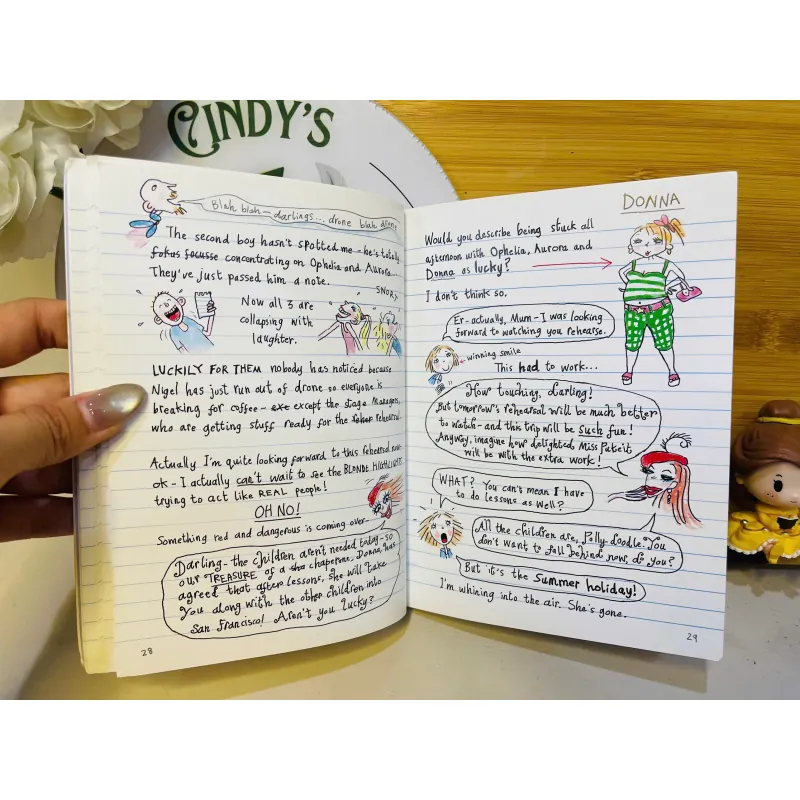 CINDY'S
Blah blah - darlings... drone blah drone
The second boy hasn't spotted me - he's totally
fokus focusse concentrating on Ophelia and Aurora...
They've just passed him a note.
SNORT
Now all 3 are
collapsing with
laughter.
LUCKILY FOR THEM nobody has noticed because
Nigel has just run out of drone so everyone is
breaking for coffee - except the stage managers,
who are getting stuff ready for the rehearsal
Actually I'm quite looking forward to this rehearsal now
ok - I actually can't wait to see the BLONDE HIGHLIGHTS
trying to act like REAL people!
OH NO!
Something red and dangerous is coming over
Darling - the children aren't needed today - so
our TREASURE of a sha chaperone, Donna, has
agreed that after lessons, she will take
you along with the other children into
San Francisco! Aren't you lucky?
28
DONNA
Would you describe being stuck all
afternoon with Ophelia, Aurora and
Donna as lucky?
I don't think so.
Er - actually, Mum - I was looking
forward to watching you rehearse.
winning smile
This had to work...
How touching, Darling!
But tomorrow's rehearsal will be much better
to watch - and this trip will be such fun!
Anyway, imagine how delighted Miss Pateit
will be with the extra work!
WHAT? You can't mean I have
to do lessons as well?
All the children are, Polly-doodle. You
don't want to fall behind now, do you?
But it's the Summer holiday!
I'm whining into the air. She's gone.
29